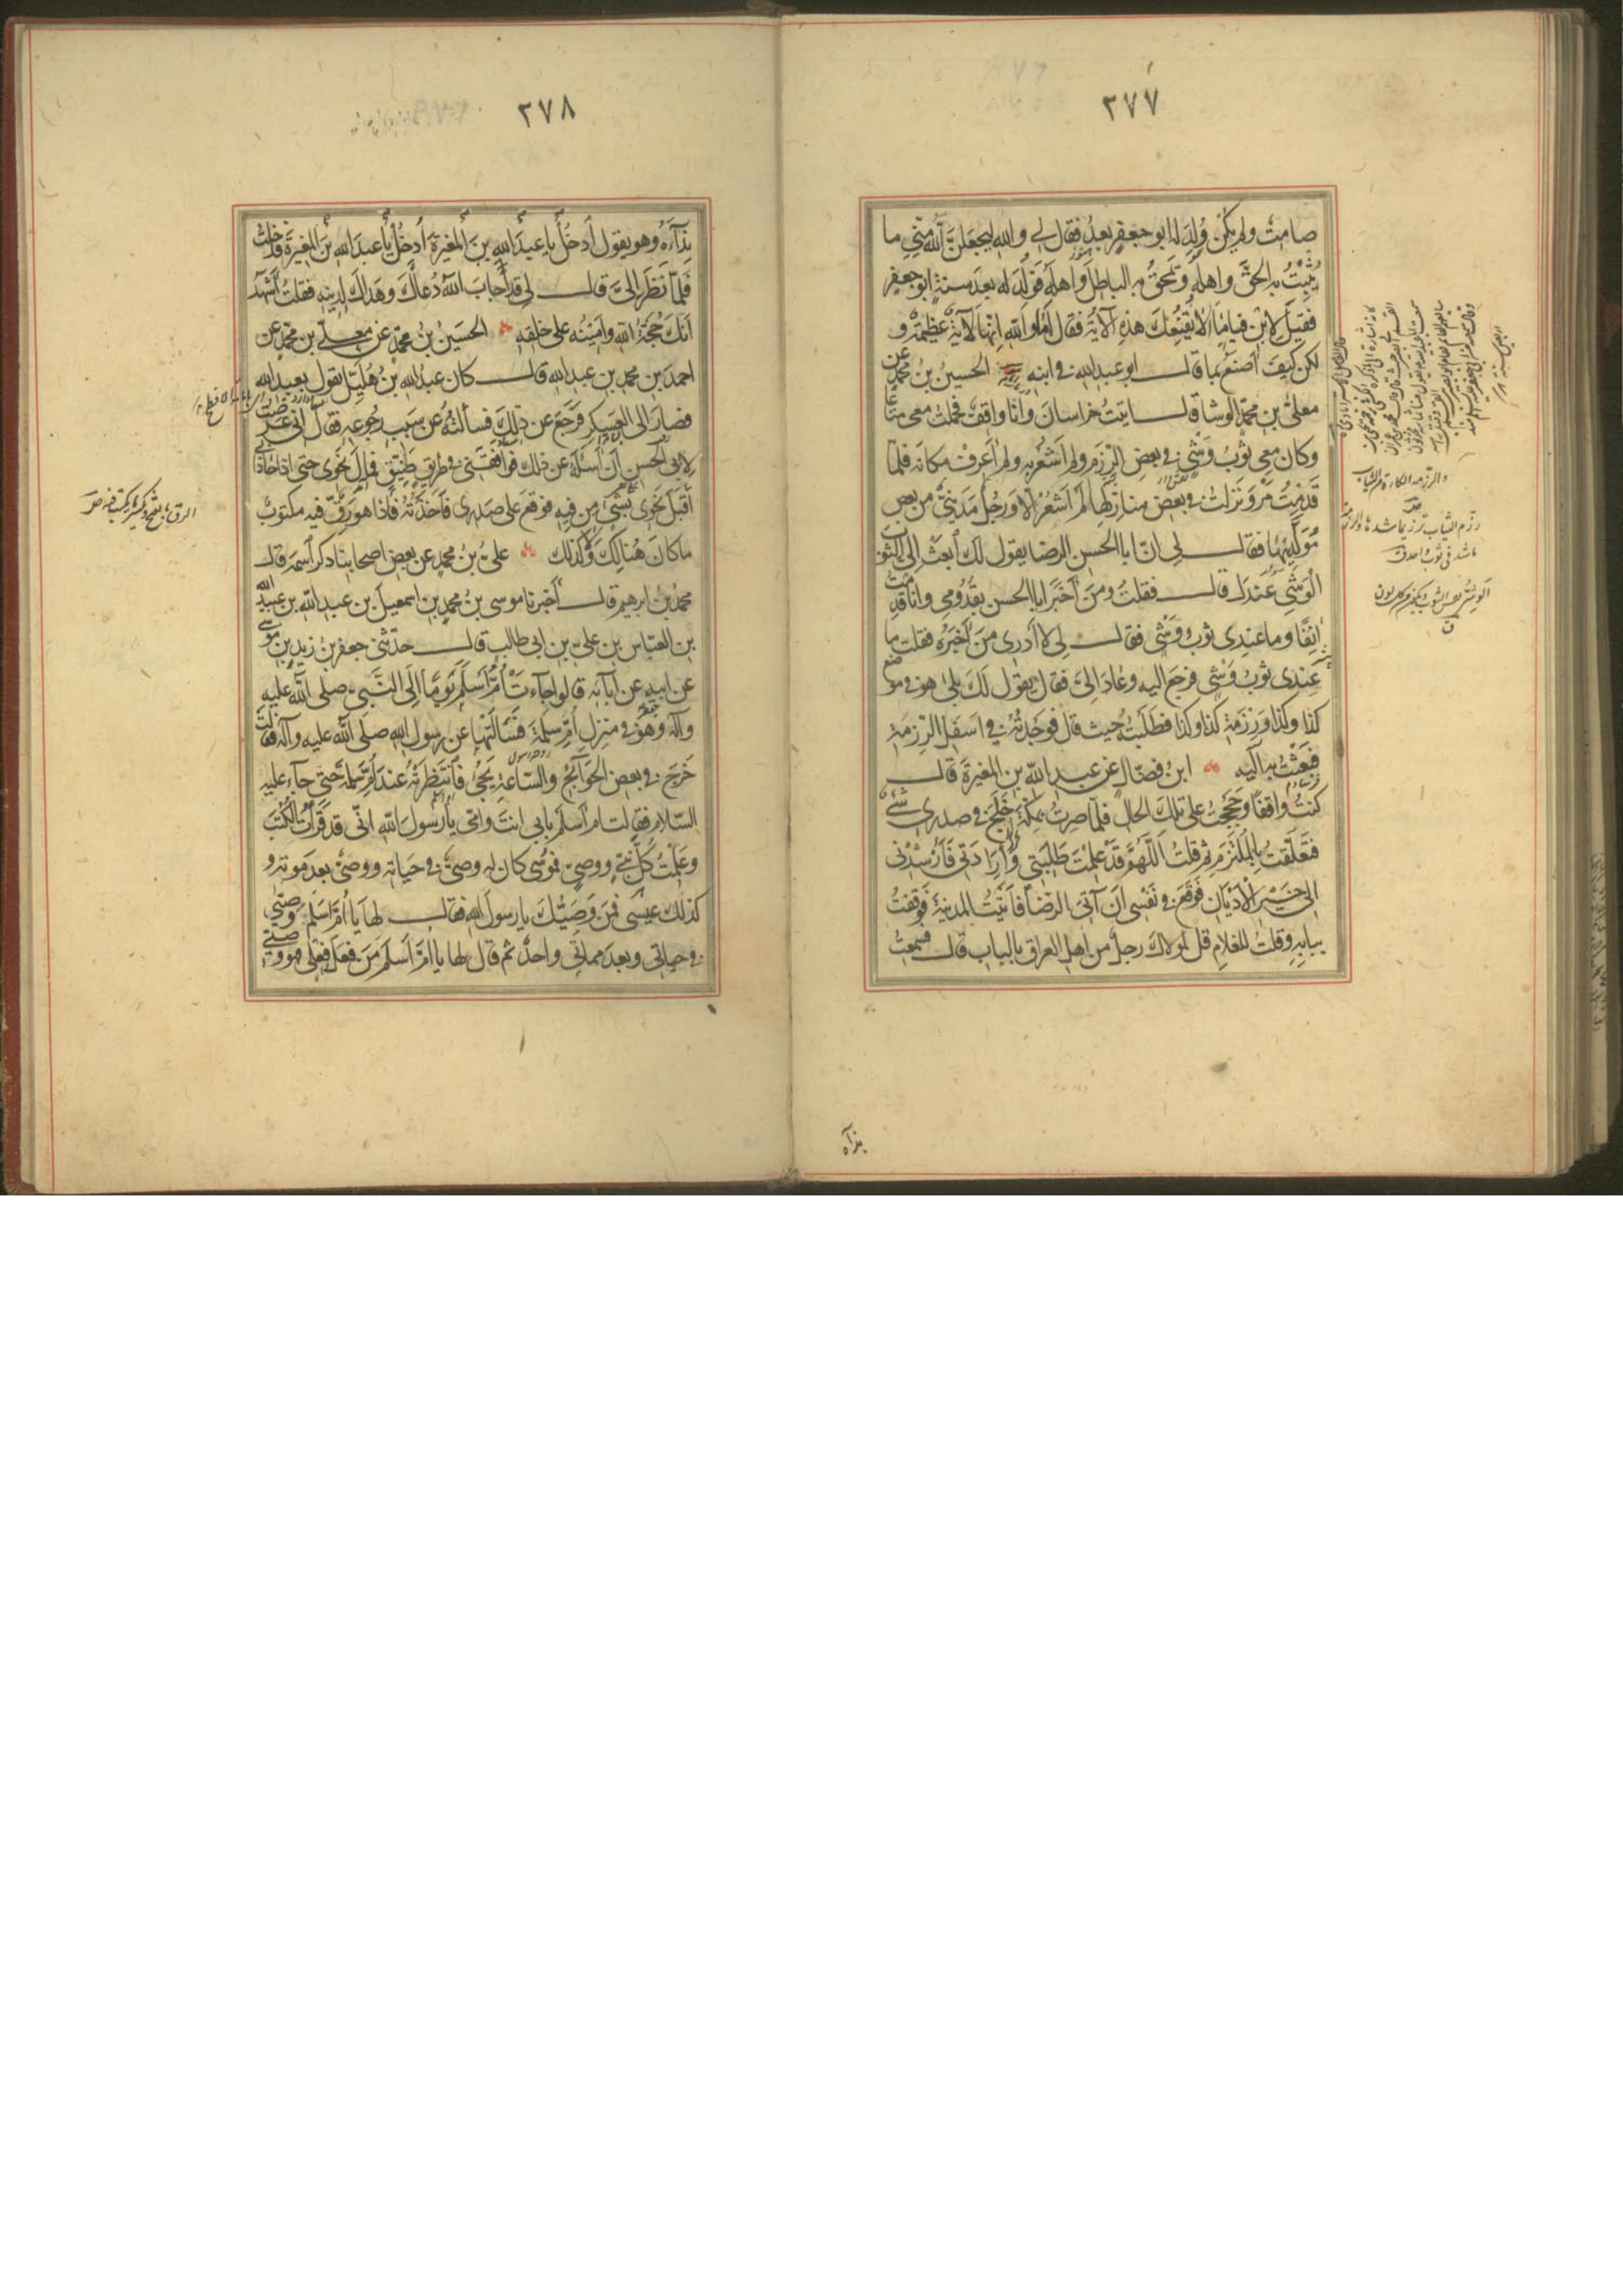 ٢٧٧
صامتٌ ولم يكن وُلِدَ له ابو جعفر بعدُ فقال لي والله ليجعلنّ الله منّي ما
يُثْبِتُ به الحقَّ واهله ويَمحَقُ به الباطلَ واهلَهُ فَوُلِدَ له بعد سنةٍ ابو جعفر
فقيل لابن قياما الا تُقنِعُكَ هذه الآية فقال اما والله انها لآيةٌ عظيمةٌ و
لكن كيف اصنع بما قال ابو عبدالله في ابنه الحسين بن محمد عن
معلى بن محمد الوشا قال اتيت خراسان وانا واقف فحملت معي متاعا
وكان معي ثوبٌ وَشْيٌ في بعض الرِّزَم ولم اَشعُر به ولم اَعرِف مكانه فلمّا
قدمتُ مَرْوَ ونزلتُ في بعض منازلها لم اشعُر الّا ورجلٌ مَدَنيٌّ من بعض
مُوَلَّديها فقال لي انّ ابا الحسن الرضا يقول لك ابعث اليّ الثوب
الوَشْيَ الذي عندك قال فقلتُ ومن اَخبَرَ ابا الحسن بقُدومي وانا قدمت
انِفًا وما عندي ثوبُ وَشْيٍ فقال لي لا ادري من اخبره فقلت ما
عندي ثوبُ وَشْيٍ فرجع اليه وعاد اليّ فقال يقول لك بلى هو في موضع
كذا وكذا ورِزمة كذا وكذا فطلبتُه حيث قال فوجدتُه في اسفل الرِّزمة
فبعثتُ به اليه ابن فضّال عن عبدالله بن المغيرة قال
كنتُ واقفًا وحججتُ على تلك الحال فلمّا صِرتُ بمكّة خَلَجَ في صدري شيءٌ
فتعلّقتُ بالمُلتَزَم ثم قلتُ اللهمّ قد علمتَ طَلِبَتي وارادتي فارشدني
الى خير الاديان فوقع في نفسي ان آتيَ الرضا فاتيتُ المدينة فوقفتُ
ببابه وقلتُ للغلام قل لمولاك رجلٌ من اهل العراق بالباب قال فسمعتُ
والرزمة الكارة من الثياب
نداه
٢٧٨
نِدآءَه وهو يقول اُدخُل يا عبدَالله بن المغيرة اُدخُل يا عبدالله بن المغيرة فدخلتُ
فلمّا نظر اليّ قال لي قد اجاب الله دُعاءَك وهداك لدينه فقلتُ اَشهَدُ
انّك حُجّةُ الله وامينُه على خلقه الحسين بن محمد عن معلى بن محمد عن
احمد بن محمد بن عبدالله قال كان عبدالله بن هُلَيل يقول بعبدالله
فصار الى العسكر فرجع عن ذلك فسالتُه عن سبب رجوعه فقال اني عرضتُ
لابي الحسن ان اسئله عن ذلك فوافقني في طريقٍ ضيّقٍ فمال نحوي حتى اذا حاذاني
اَقبَلَ نحوي بشيءٍ من فيه فوقع على صدري فاخذتُه فاذا هو رَقٌّ فيه مكتوبٌ
ما كان هنالك ولا كذلك عليّ بن محمد عن بعض اصحابنا ذكر اسمه قال
محمد بن ابرهيم قال اخبرنا موسى بن محمد بن اسمعيل بن عبدالله بن عبيدالله
بن العبّاس بن عليّ بن ابي طالب قال حدّثني جعفر بن زيد بن موسى
عن ابيه عن آبائه قالوا جاءت اُمُّ اَسلَمَ يومًا الى النبيّ صلى الله عليه
وآله وهو في منزل اُمّ سلمة فسالَتها عن رسول الله صلى الله عليه وآله فقالت
خرج في بعض الحوائج والساعة يجيءُ فانتظرته عند امّ سلمة حتى جاء عليه
السلام فقالت ام اسلم بابي انت وامّي يا رسول الله انّي قد قراتُ الكُتُبَ
وعلمتُ كلَّ نبيٍّ ووصيٍّ فموسى كان له وصيٌّ في حياته ووصيٌّ بعد موته و
كذلك عيسى فمن وصيُّك يا رسول الله فقال لها يا اُمَّ اَسلَمَ وصيّي
في حياتي وبعد مماتي واحدٌ ثم قال لها يا امّ اسلم من فعل فعلي فهو وصيّي